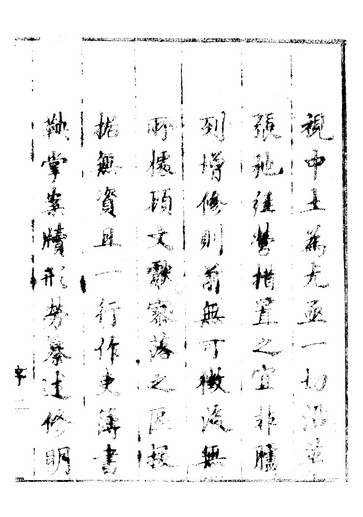 視中土為尤亟一切沿革
張弛經營措置之宜非臚
列增修則前無可徵後無
所據顧文獻寥落之區採
摭無資且一行作吏簿書
鞅掌案牘形勞纂述修明
序